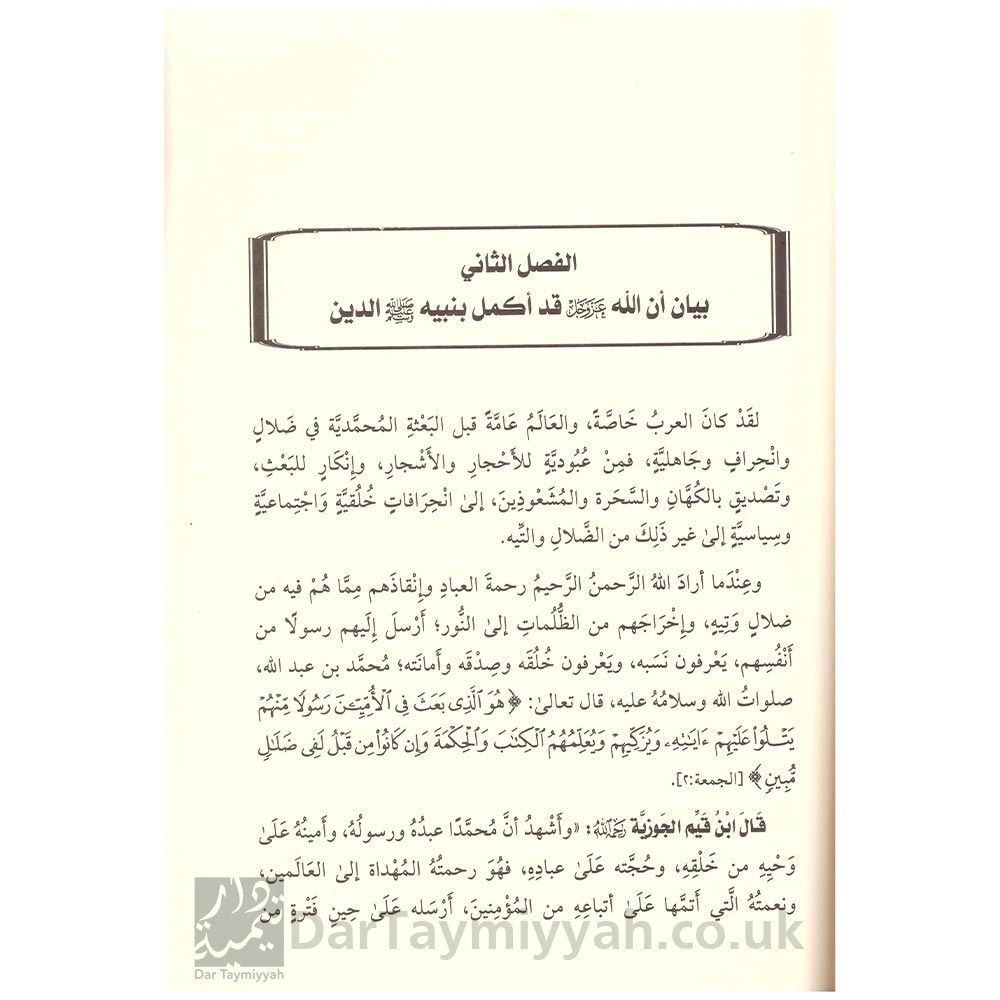 الفصل الثاني
بيان أن الله عَزَّوَجَلَّ قد أكمل بنبيه ﷺ الدين
لقَدْ كانَ العربُ خَاصَّةً، والعَالَمُ عَامَّةً قبل البَعْثةِ المُحمَّديَّة في ضَلالٍ
وانْحِرافٍ وجَاهليَّةٍ، فمِنْ عُبُوديَّةٍ للأَحْجارِ والأَشْجارِ، وإِنْكَارٍ للبَعْثِ،
وتَصْديقٍ بالكُهَّانِ والسَّحَرة والمُشَعْوذِينَ، إلىٰ انْحِرَافاتٍ خُلُقيَّةٍ وَاجْتِماعيَّةٍ
وسِياسيَّةٍ إلىٰ غير ذَلِكَ من الضَّلالِ والتِّيه.
وعِنْدَما أرادَ اللهُ الرَّحمنُ الرَّحيمُ رحمةَ العبادِ وإِنْقاذَهم مِمَّا هُمْ فيه من
ضلالٍ وَتِيهٍ، وإِخْرَاجَهم من الظُّلُماتِ إلىٰ النُّور؛ أَرْسلَ إِلَيهم رسولًا من
أَنْفُسِهم، يَعْرفون نَسَبه، ويَعْرفون خُلُقه وصِدْقه وأَمانَته؛ مُحمَّد بن عبد الله،
صلواتُ الله وسلامُهُ عليه، قال تعالىٰ: ﴿هُوَ ٱلَّذِى بَعَثَ فِى ٱلْأُمِّيِّـۧنَ رَسُولًا مِّنْهُمْ
يَتْلُوا۟ عَلَيْهِمْ ءَايَـٰتِهِۦ وَيُزَكِّيهِمْ وَيُعَلِّمُهُمُ ٱلْكِتَـٰبَ وَٱلْحِكْمَةَ وَإِن كَانُوا۟ مِن قَبْلُ لَفِى ضَلَـٰلٍ
مُّبِينٍ﴾ [الجمعة:٢].
قَالَ ابْنُ قَيِّم الجَوزيَّة رَحِمَهُ اللَّهُ: «وأَشْهدُ أنَّ مُحمَّدًا عبدُهُ ورسولُهُ، وأَمينُهُ عَلَىٰ
وَحْيِهِ من خَلْقِهِ، وحُجَّته عَلَىٰ عبادِهِ، فهُوَ رحمتُهُ المُهْداة إلىٰ العَالَمين،
ونعمتُهُ الَّتي أَتمَّها عَلَىٰ أتباعِهِ من المُؤْمنِينَ، أَرْسَله عَلَىٰ حِينِ فَتْرةٍ من
دار تيمية
Dar Taymiyyah
DarTaymiyyah.co.uk